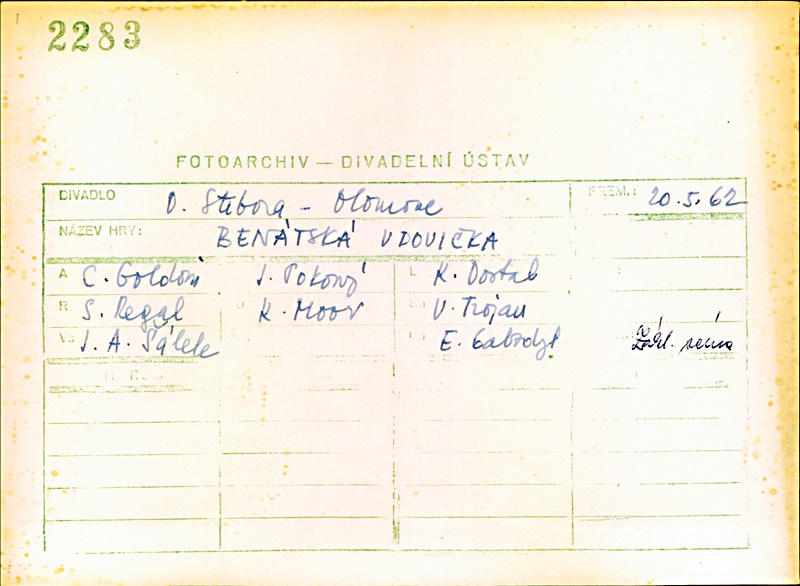 2283
FOTOARCHIV — DIVADELNÍ ÚSTAV
DIVADLO D. Stibora - Olomouc PREM.: 20.5.62
NÁZEV HRY: BENÁTSKÁ VDOVIČKA
A C. Goldoni J. Pokorný L K. Dostal
R S. Regal K. Moor V. Trojan
J. A. Šálek E. Gabzdyl